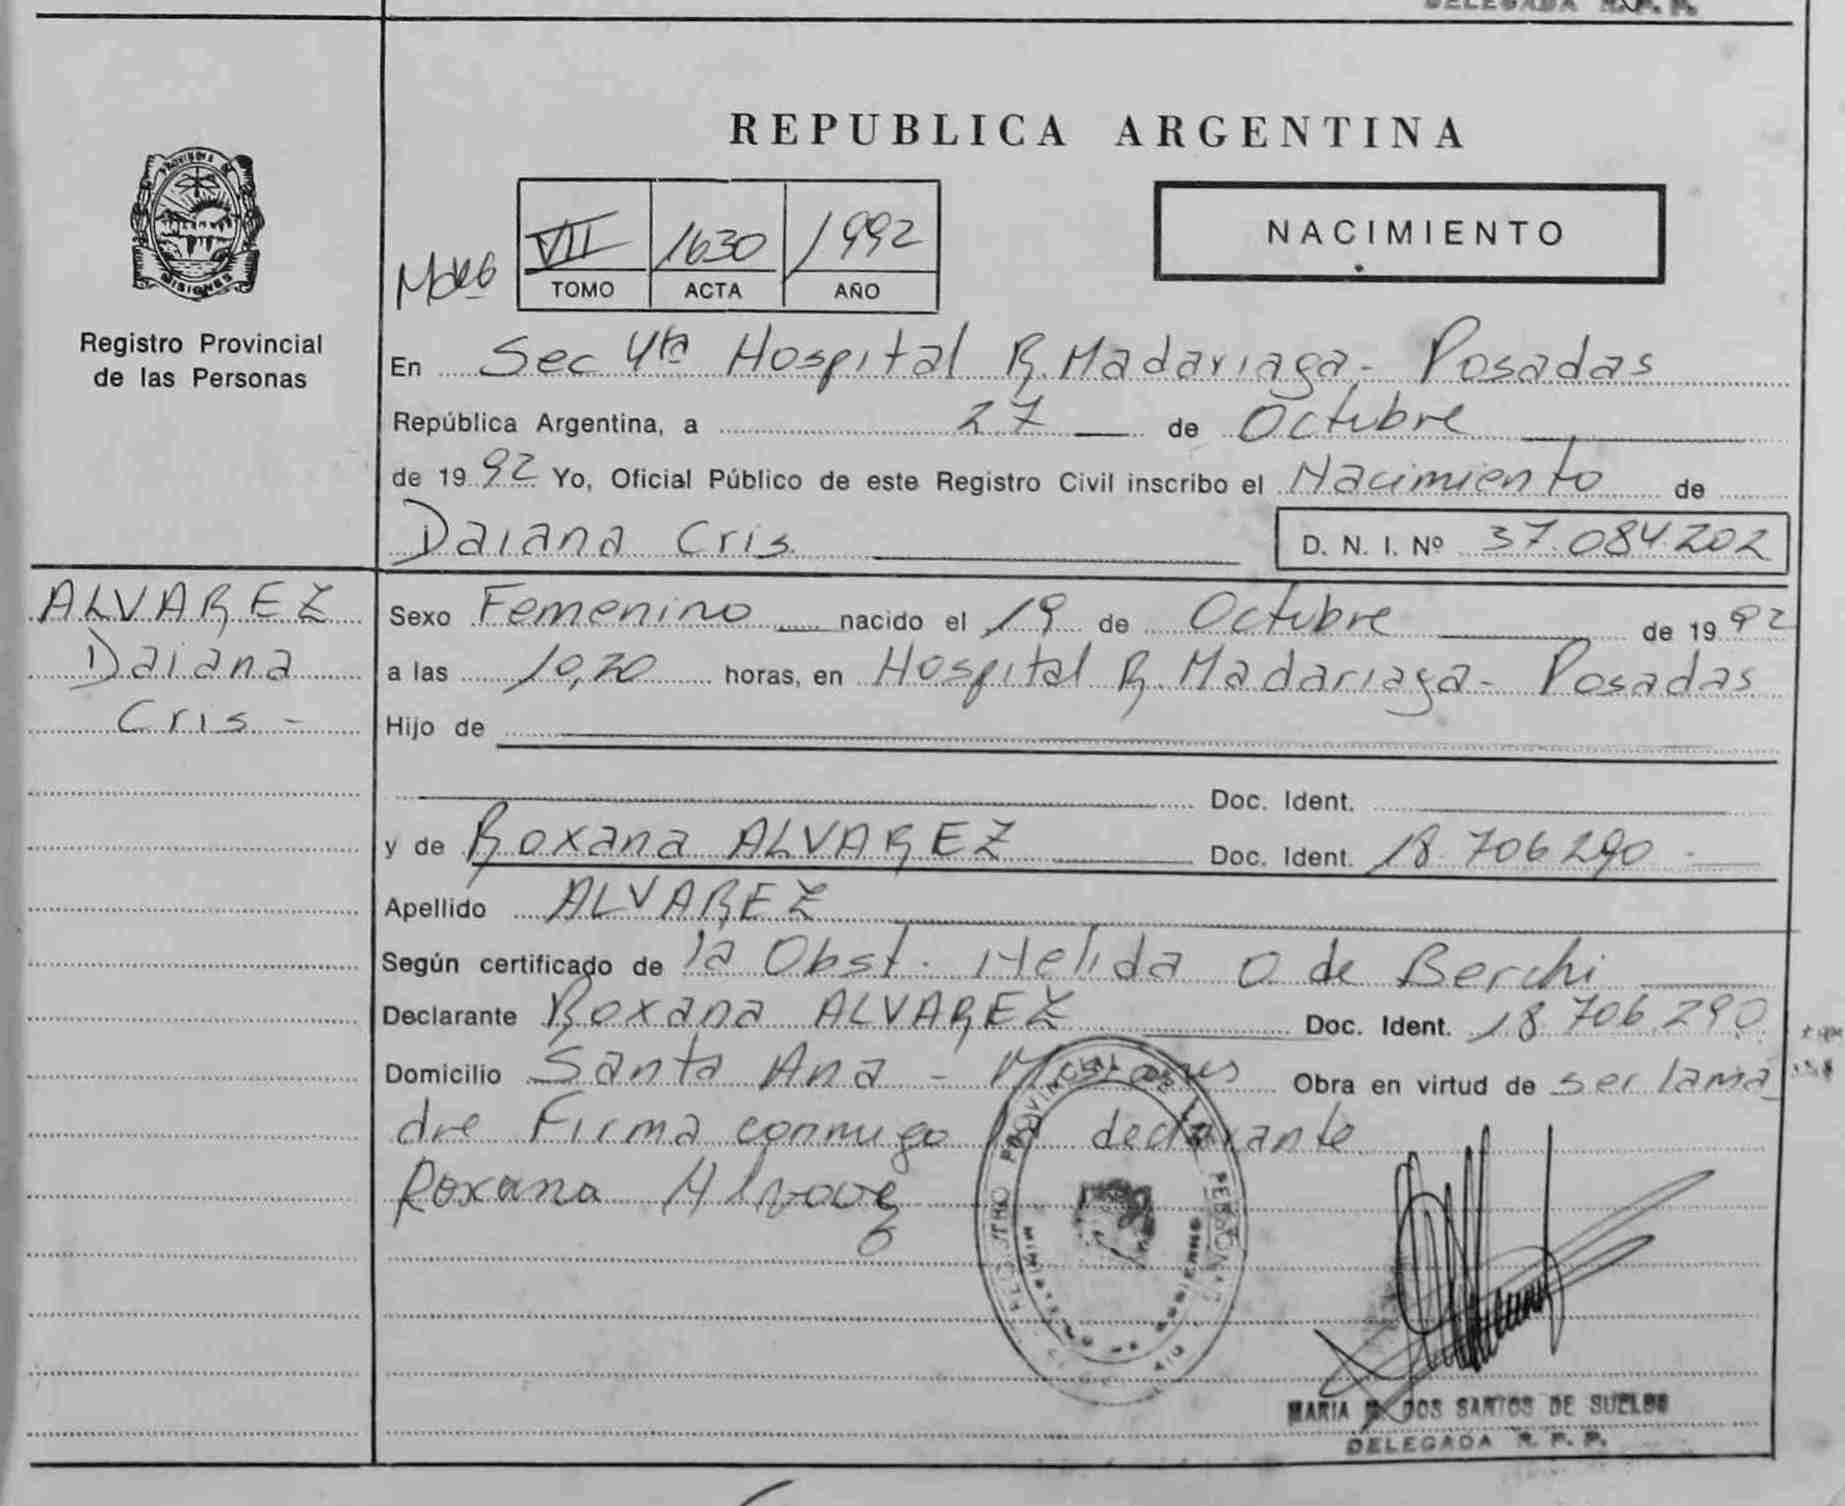 DELEGADA R. P. P.
PROVINCIA DE
MISIONES
Registro Provincial
de las Personas
REPUBLICA ARGENTINA
VII 1630 1992
TOMO ACTA AÑO
NACIMIENTO
En Sec 4ta Hospital R. Madariaga - Posadas
República Argentina, a 27 de Octubre
de 1992 Yo, Oficial Público de este Registro Civil inscribo el Nacimiento de
Daiana Cris
D. N. I. Nº 37.084.202
ALVAREZ
Daiana
Cris -
Sexo Femenino nacido el 19 de Octubre de 1992
a las 10,20 horas, en Hospital R. Madariaga - Posadas
Hijo de
Doc. Ident.
y de Roxana ALVAREZ Doc. Ident. 18.706290 -
Apellido ALVAREZ
Según certificado de la Obst. Nelida O. de Berchi
Declarante Roxana ALVAREZ Doc. Ident. 18.706290
Domicilio Santa Ana - Misiones Obra en virtud de ser la ma
dre Firma conmigo la declarante
Roxana Alvarez
REGISTRO PROVINCIAL DE LAS PERSONAS
MINISTERIO DE GOBIERNO
MARIA DOS SANTOS DE SUELDO
DELEGADA R. P. P.